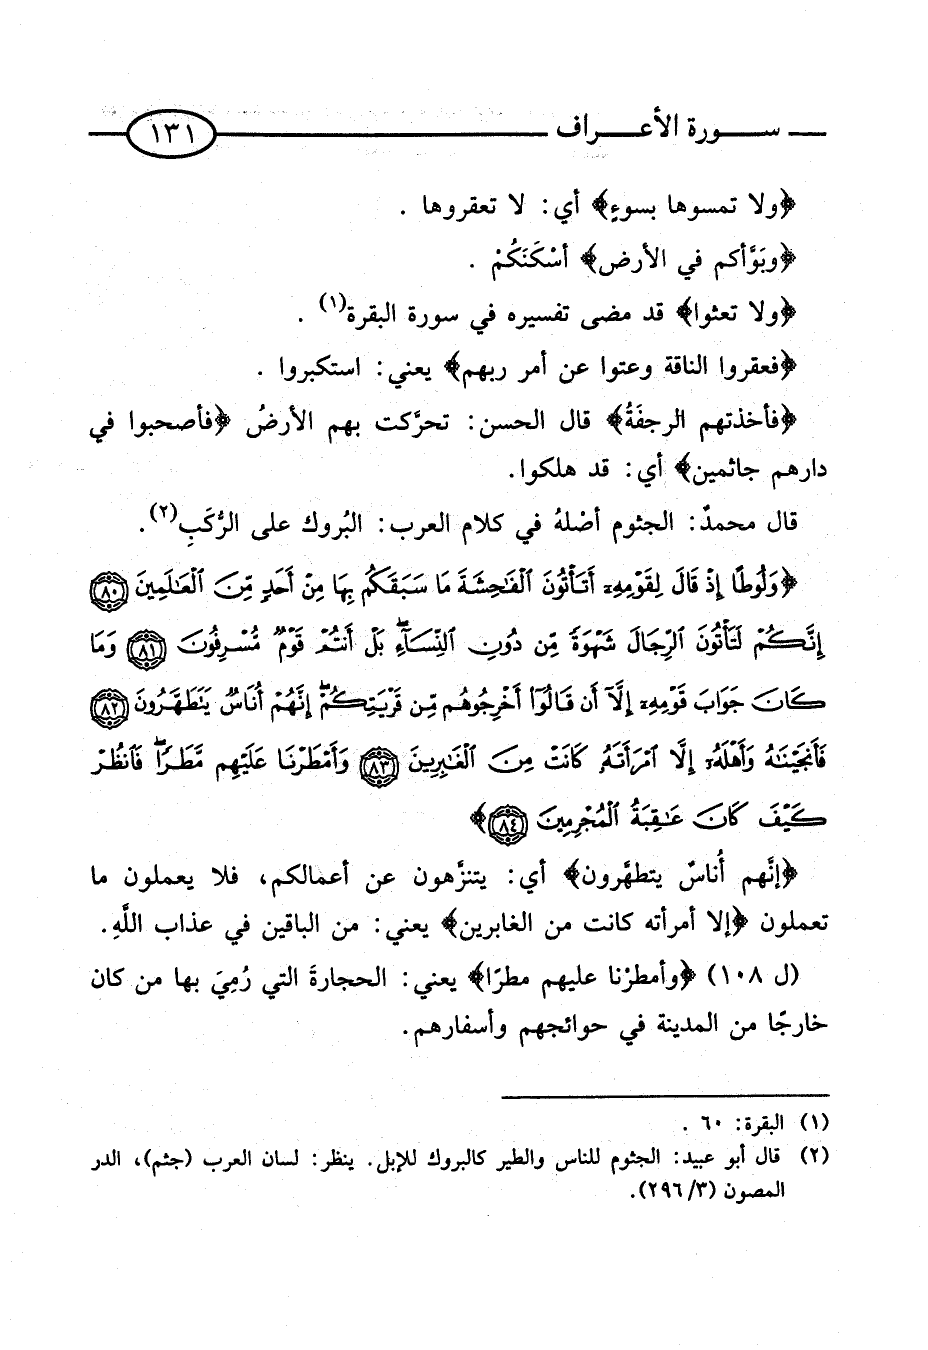 سـورة الأعـراف
١٣١
﴿ولا تمسوها بسوءٍ﴾ أي: لا تعقروها .
﴿وبَوَّأكم في الأرض﴾ أسْكَنَكُمْ .
﴿ولا تعثوا﴾ قد مضى تفسيره في سورة البقرة(١) .
﴿فعقروا الناقة وعتوا عن أمر ربهم﴾ يعني: استكبروا .
﴿فأخذتهم الرجفَةُ﴾ قال الحسن: تحرَّكت بهم الأرضُ ﴿فأصحبوا في
دارهم جاثمين﴾ أي: قد هلكوا.
قال محمدٌ: الجثوم أصْلهُ في كلام العرب: البُروك على الرُّكَبِ(٢).
﴿وَلُوطًا إِذْ قَالَ لِقَوْمِهِۦٓ أَتَأْتُونَ ٱلْفَٰحِشَةَ مَا سَبَقَكُم بِهَا مِنْ أَحَدٍ مِّنَ ٱلْعَٰلَمِينَ ٨٠
إِنَّكُمْ لَتَأْتُونَ ٱلرِّجَالَ شَهْوَةً مِّن دُونِ ٱلنِّسَآءِۚ بَلْ أَنتُمْ قَوْمٌ مُّسْرِفُونَ ٨١ وَمَا
كَانَ جَوَابَ قَوْمِهِۦٓ إِلَّآ أَن قَالُوٓا۟ أَخْرِجُوهُم مِّن قَرْيَتِكُمْۖ إِنَّهُمْ أُنَاسٌ يَتَطَهَّرُونَ ٨٢
فَأَنجَيْنَٰهُ وَأَهْلَهُۥٓ إِلَّا ٱمْرَأَتَهُۥ كَانَتْ مِنَ ٱلْغَٰبِرِينَ ٨٣ وَأَمْطَرْنَا عَلَيْهِم مَّطَرًاۖ فَٱنظُرْ
كَيْفَ كَانَ عَٰقِبَةُ ٱلْمُجْرِمِينَ ٨٤﴾
﴿إنَّهم أُناسٌ يتطهَّرون﴾ أي: يتنزَّهون عن أعمالكم، فلا يعملون ما
تعملون ﴿إلا أمرأته كانت من الغابرين﴾ يعني: من الباقين في عذاب اللَّهِ.
(ل ١٠٨) ﴿وأمطرْنا عليهم مطرًا﴾ يعني: الحجارةَ التي رُمِيَ بها من كان
خارجًا من المدينة في حوائجهم وأسفارهم.
(١) البقرة: ٦٠ .
(٢) قال أبو عبيد: الجثوم للناس والطير كالبروك للإبل. ينظر: لسان العرب (جثم)، الدر
المصون (٢٩٦/٣).